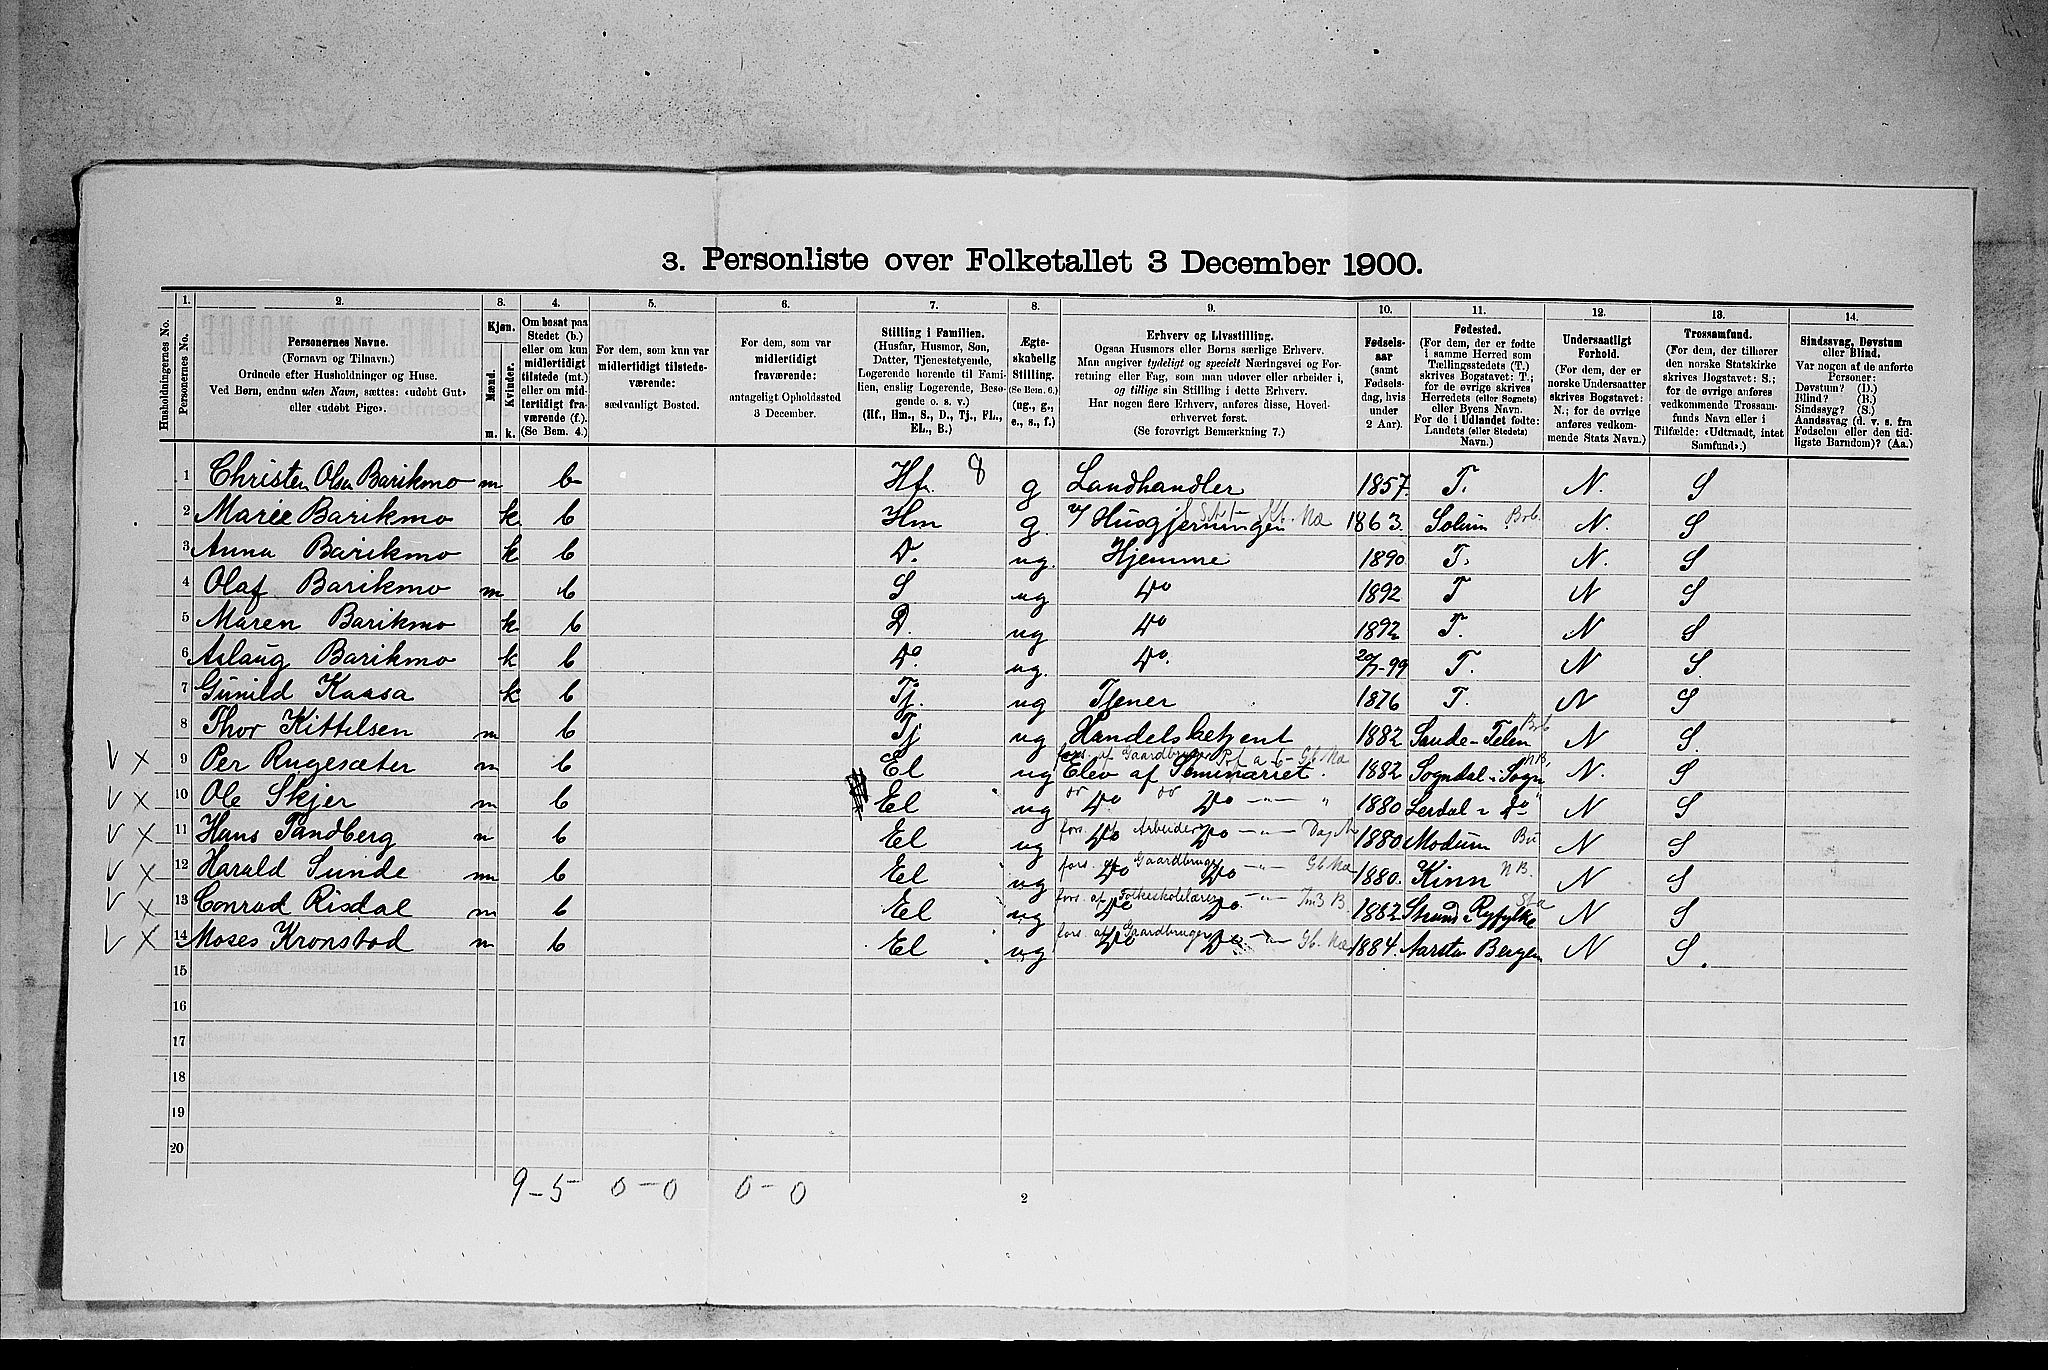 3. Personliste over Folketallet 3 December 1900.
1. 2. 3. 4. 5. 6. 7. 8. 9. 10. 11. 12. 13. 14.
Husholdningernes No.
Personernes No.
Personernes Navne.
(Fornavn og Tilnavn.)
Ordnede efter Husholdninger og Huse.
Ved Børn, endnu uden Navn, sættes: «udøbt Gut»
eller «udøbt Pige».
Kjøn.
Mænd.
Kvinder.
m. k.
Om bosat paa
Stedet (b.)
eller om kun
midlertidigt
tilstede (mt.)
eller om mid-
lertidigt fra-
værende (f.).
(Se Bem. 4.)
For dem, som kun var
midlertidigt tilstede-
værende:
sædvanligt Bosted.
For dem, som var
midlertidigt
fraværende:
antageligt Opholdssted
3 December.
Stilling i Familien.
(Husfar, Husmor, Søn,
Datter, Tjenestetyende,
Logerende hørende til Fami-
lien, enslig Logerende, Besø-
gende o. s. v.)
(Hf., Hm., S., D., Tj., FL.,
EL., B.)
Ægte-
skabelig
Stilling.
(Se Bem. 6.)
(ug., g.,
e., s., f.)
Erhverv og Livsstilling.
Ogsaa Husmors eller Børns særlige Erhverv.
Man angiver tydeligt og specielt Næringsvei og For-
retning eller Fag, som man udøver eller arbeider i,
og tillige sin Stilling i dette Erhverv.
Har nogen flere Erhverv, anføres disse, Hoved-
erhvervet først.
(Se forøvrigt Bemærkning 7.)
Fødsels-
aar
(samt
Fødsels-
dag, hvis
under
2 Aar).
Fødested.
(For dem, der er fødte
i samme Herred som
Tællingsstedets (T.)
skrives Bogstavet: T.;
for de øvrige skrives
Herredets (eller Sognets)
eller Byens Navn.
For de i Udlandet fødte:
Landets (eller Stedets)
Navn.)
Undersaatligt
Forhold.
(For dem, der er
norske Undersaatter
skrives Bogstavet:
N.; for de øvrige
anføres vedkom-
mende Stats Navn.)
Trossamfund.
(For dem, der tilhører
den norske Statskirke
skrives Bogstavet: S.;
for de øvrige anføres
vedkommende Trossam-
funds Navn eller i
Tilfælde: «Udtraadt, intet
Samfund».)
Sindssvag, Døvstum
eller Blind.
Var nogen af de anførte
Personer:
Døvstum? (D.)
Blind? (B.)
Sindssyg? (S.)
Aandssvag (d. v. s. fra
Fødselen eller den tid-
ligste Barndom)? (Aa.)
1 Christen Olsen Barikmo m b Hf. 8 g Landhandler 1857. T. N. S
2 Maree Barikmo k b Hm g. Husgjerningen 1863. Solum N. S
3 Anna Barikmo k b D. ug. Hjemme 1890 T. N. S
4 Olaf Barikmo m b S ug Do 1892 T N S
5 Maren Barikmo k b D. ug Do 1892 T. N S
6 Aslaug Barikmo k b Do ug. Do. -99 T. N S.
7 Gunild Kaasa k b Tj. ug Tjener 1876 T. N S
8 Thor Kittilsen m b Tj ug Handelsbetjent 1882 Saude-Telem N S.
V X 9 Per Rugesæter m b El ug fors. af Gaardbruger Gb Næ Elev af Seminariet. 1882 Sogndal i Sogn N. S
V X 10 Ole Skjer m b El ug Do Do 1880 Lerdal i do N S
V X 11 Hans Tandberg m b El ug fors. af Arbeider Do Do 1880 Modum Bu N S
V X 12 Harald Sunde m b El ug fors. af Gaardbruger Gb Næ Do Do 1880. Kinn N.B. N S
V X 13 Conrad Risdal m b El ug fors. af Folkeskolelærer Do Do. 1882 Strand i Ryfylke Sta N S
V X 14 Moses Kronstad m b El ug fors. af Gaardbruger Gb. Næ Do Do 1884. Aarstad Bergen N S.
15
16
17
18
19
20
9-5 0-0 0-0
2